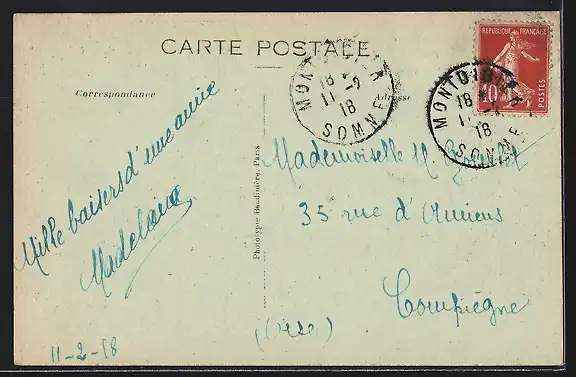 CARTE POSTALE
Correspondance
Adresse
REPUBLIQUE FRANÇAISE
10
POSTES
MONTDIDIER
18 *
11 -2
18
SOMME
MONTDIDIER
18 *
11 -2
18
SOMME
Mille baisers d'une amie
Madeleine
11-2-18
Phototypie Baudinière, Paris
Mademoiselle M.
35 rue d'Amiens
Compiègne
(Oise)